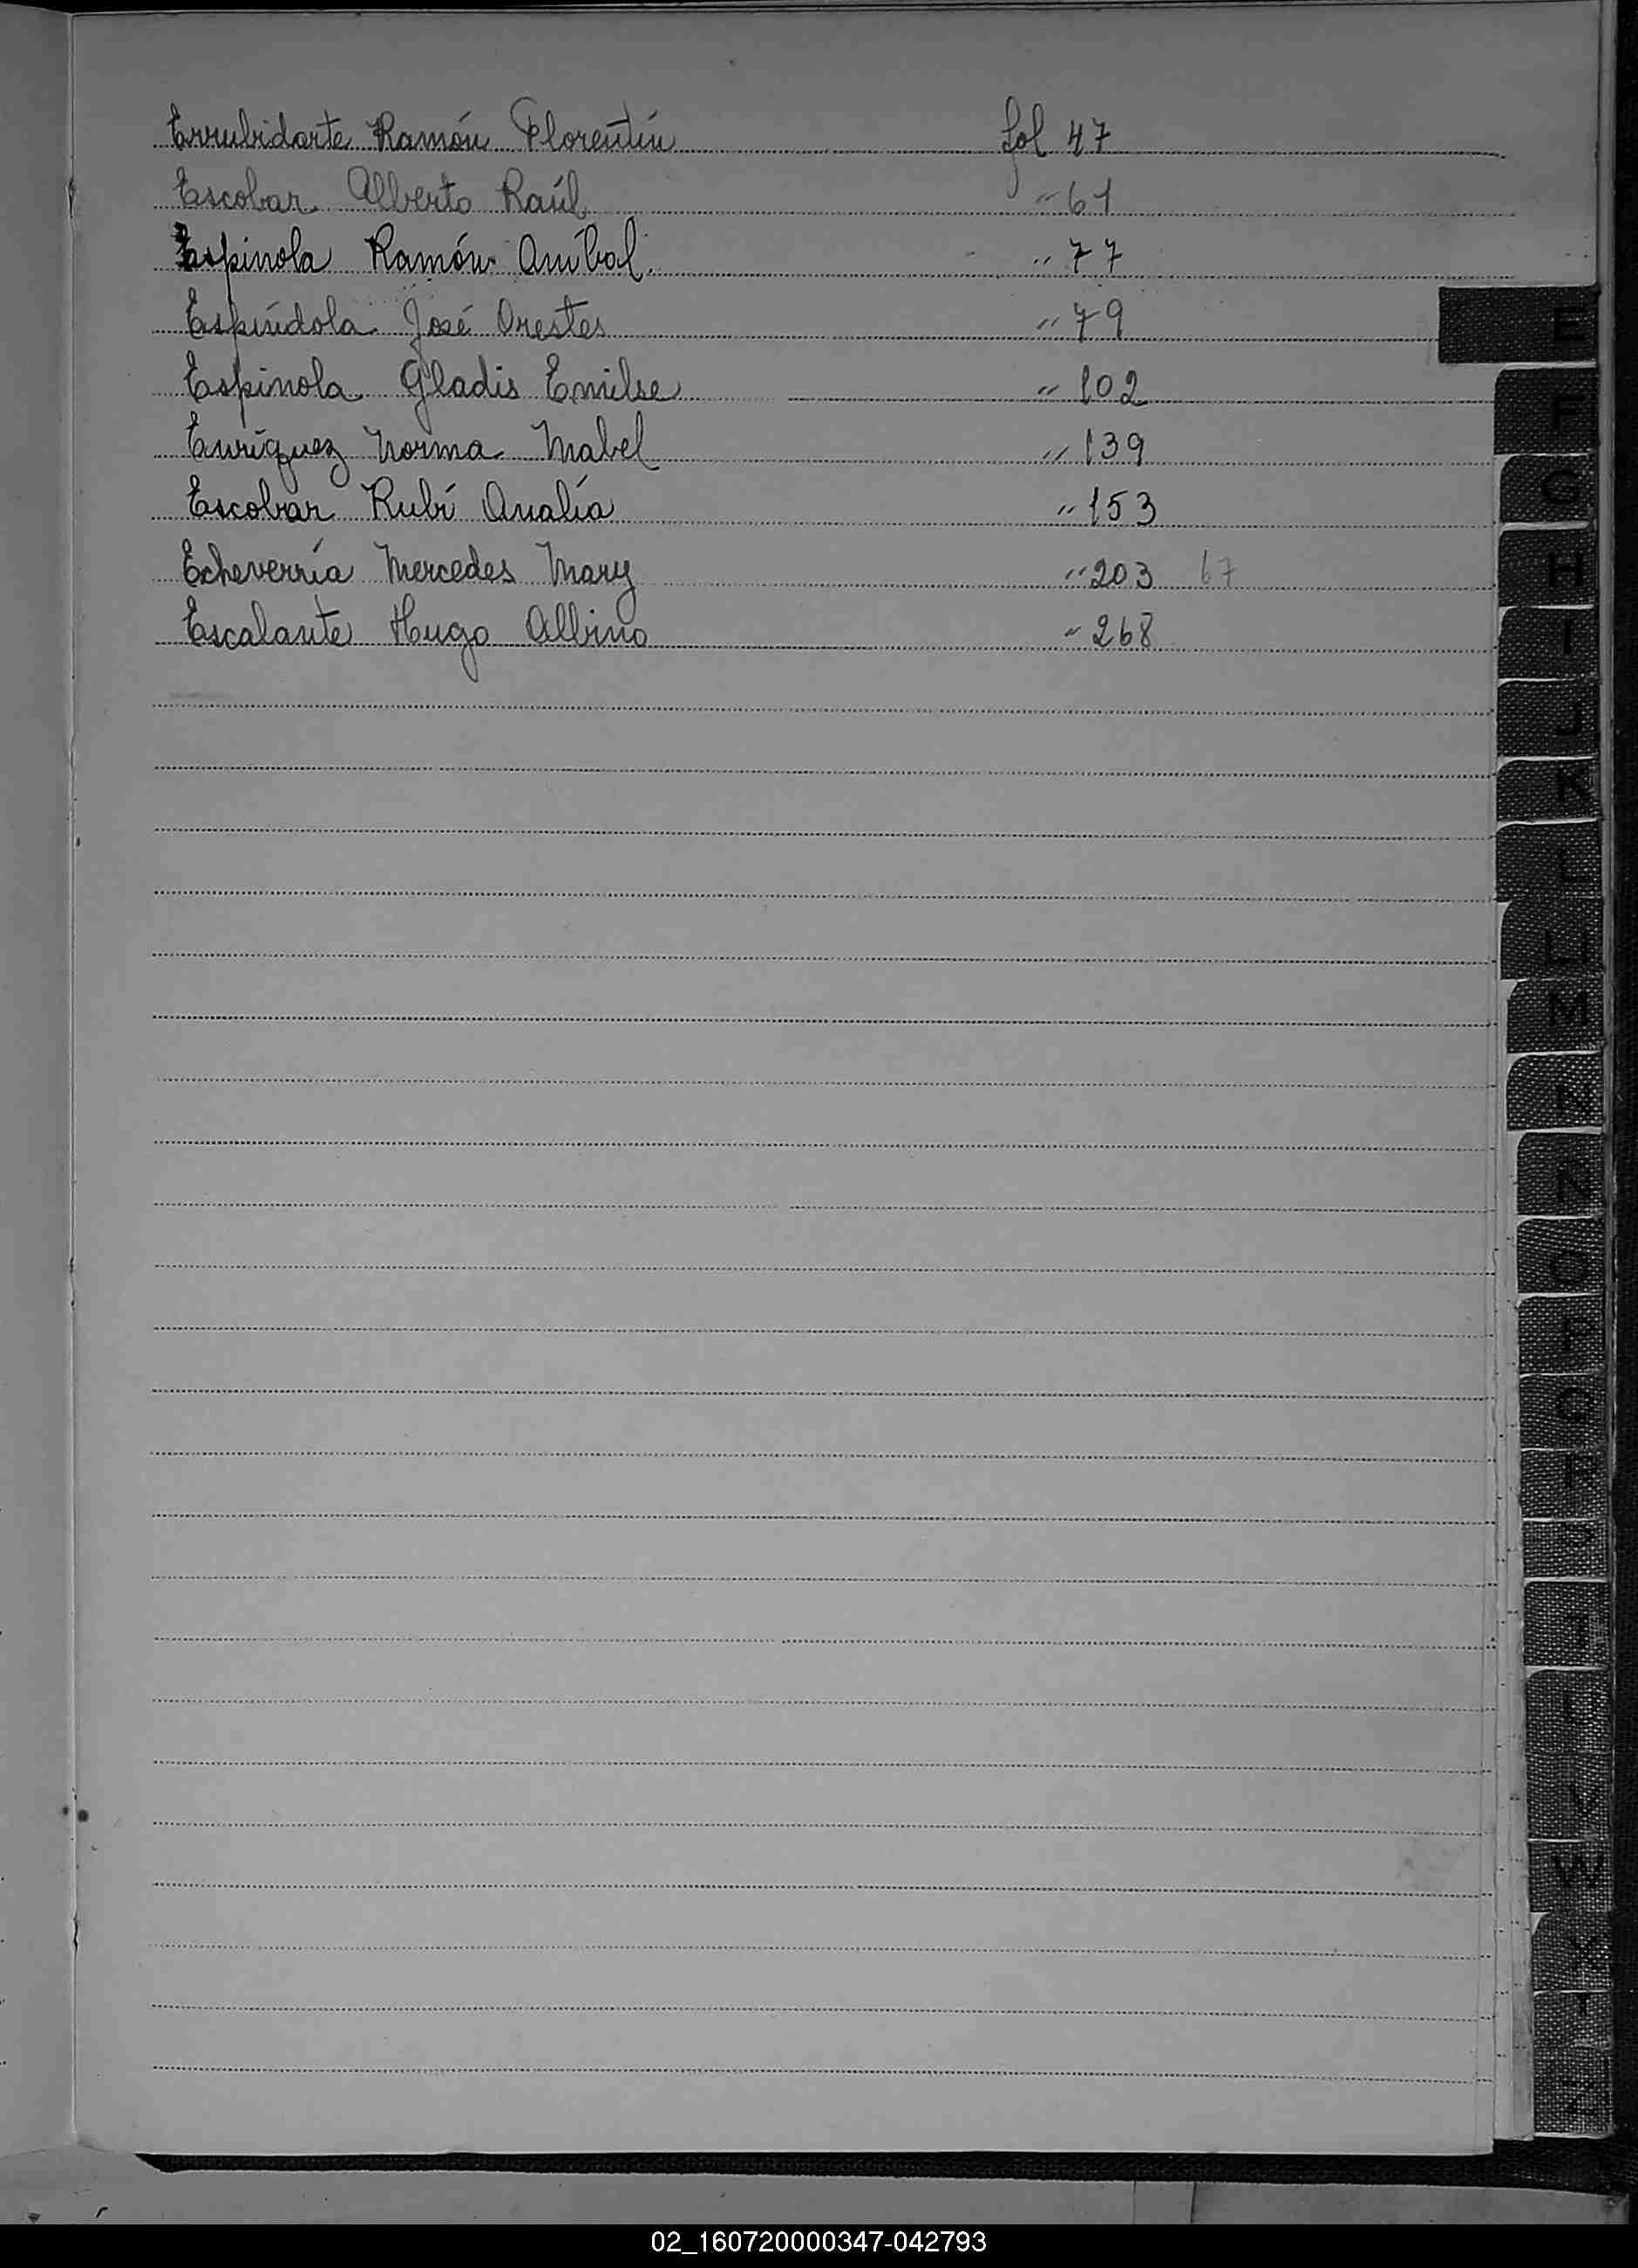 Errubidarte Ramón Florentín fol 47
Escobar Alberto Raúl " 61
Espinola Ramón Aníbal " 77
Espíndola José Orestes " 79
Espinola Gladis Emilse " 102
Enríquez Norma Mabel " 139
Escobar Rubí Analía " 153
Echeverría Mercedes Mary " 203 67
Escalante Hugo Albino " 268
E
F
G
H
I
J
K
L
LL
M
N
Ñ
O
P
Q
R
S
T
V
W
X
02_160720000347-042793